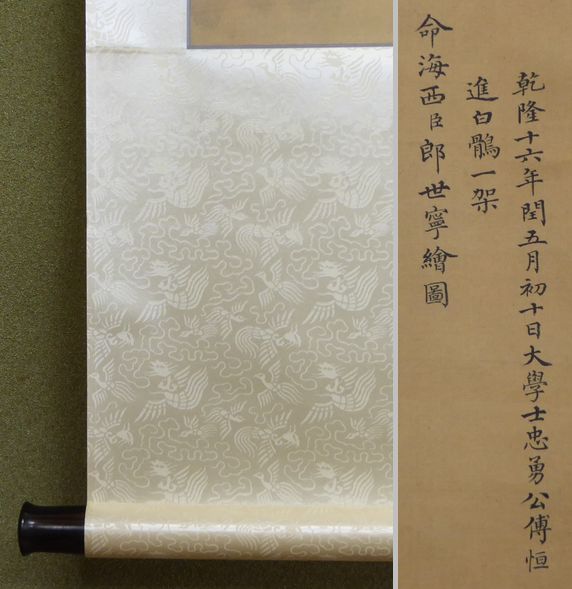 乾隆十六年閏五月初十日大學士忠勇公傅恒
進白鶻一架
命海西臣郎世寧繪圖